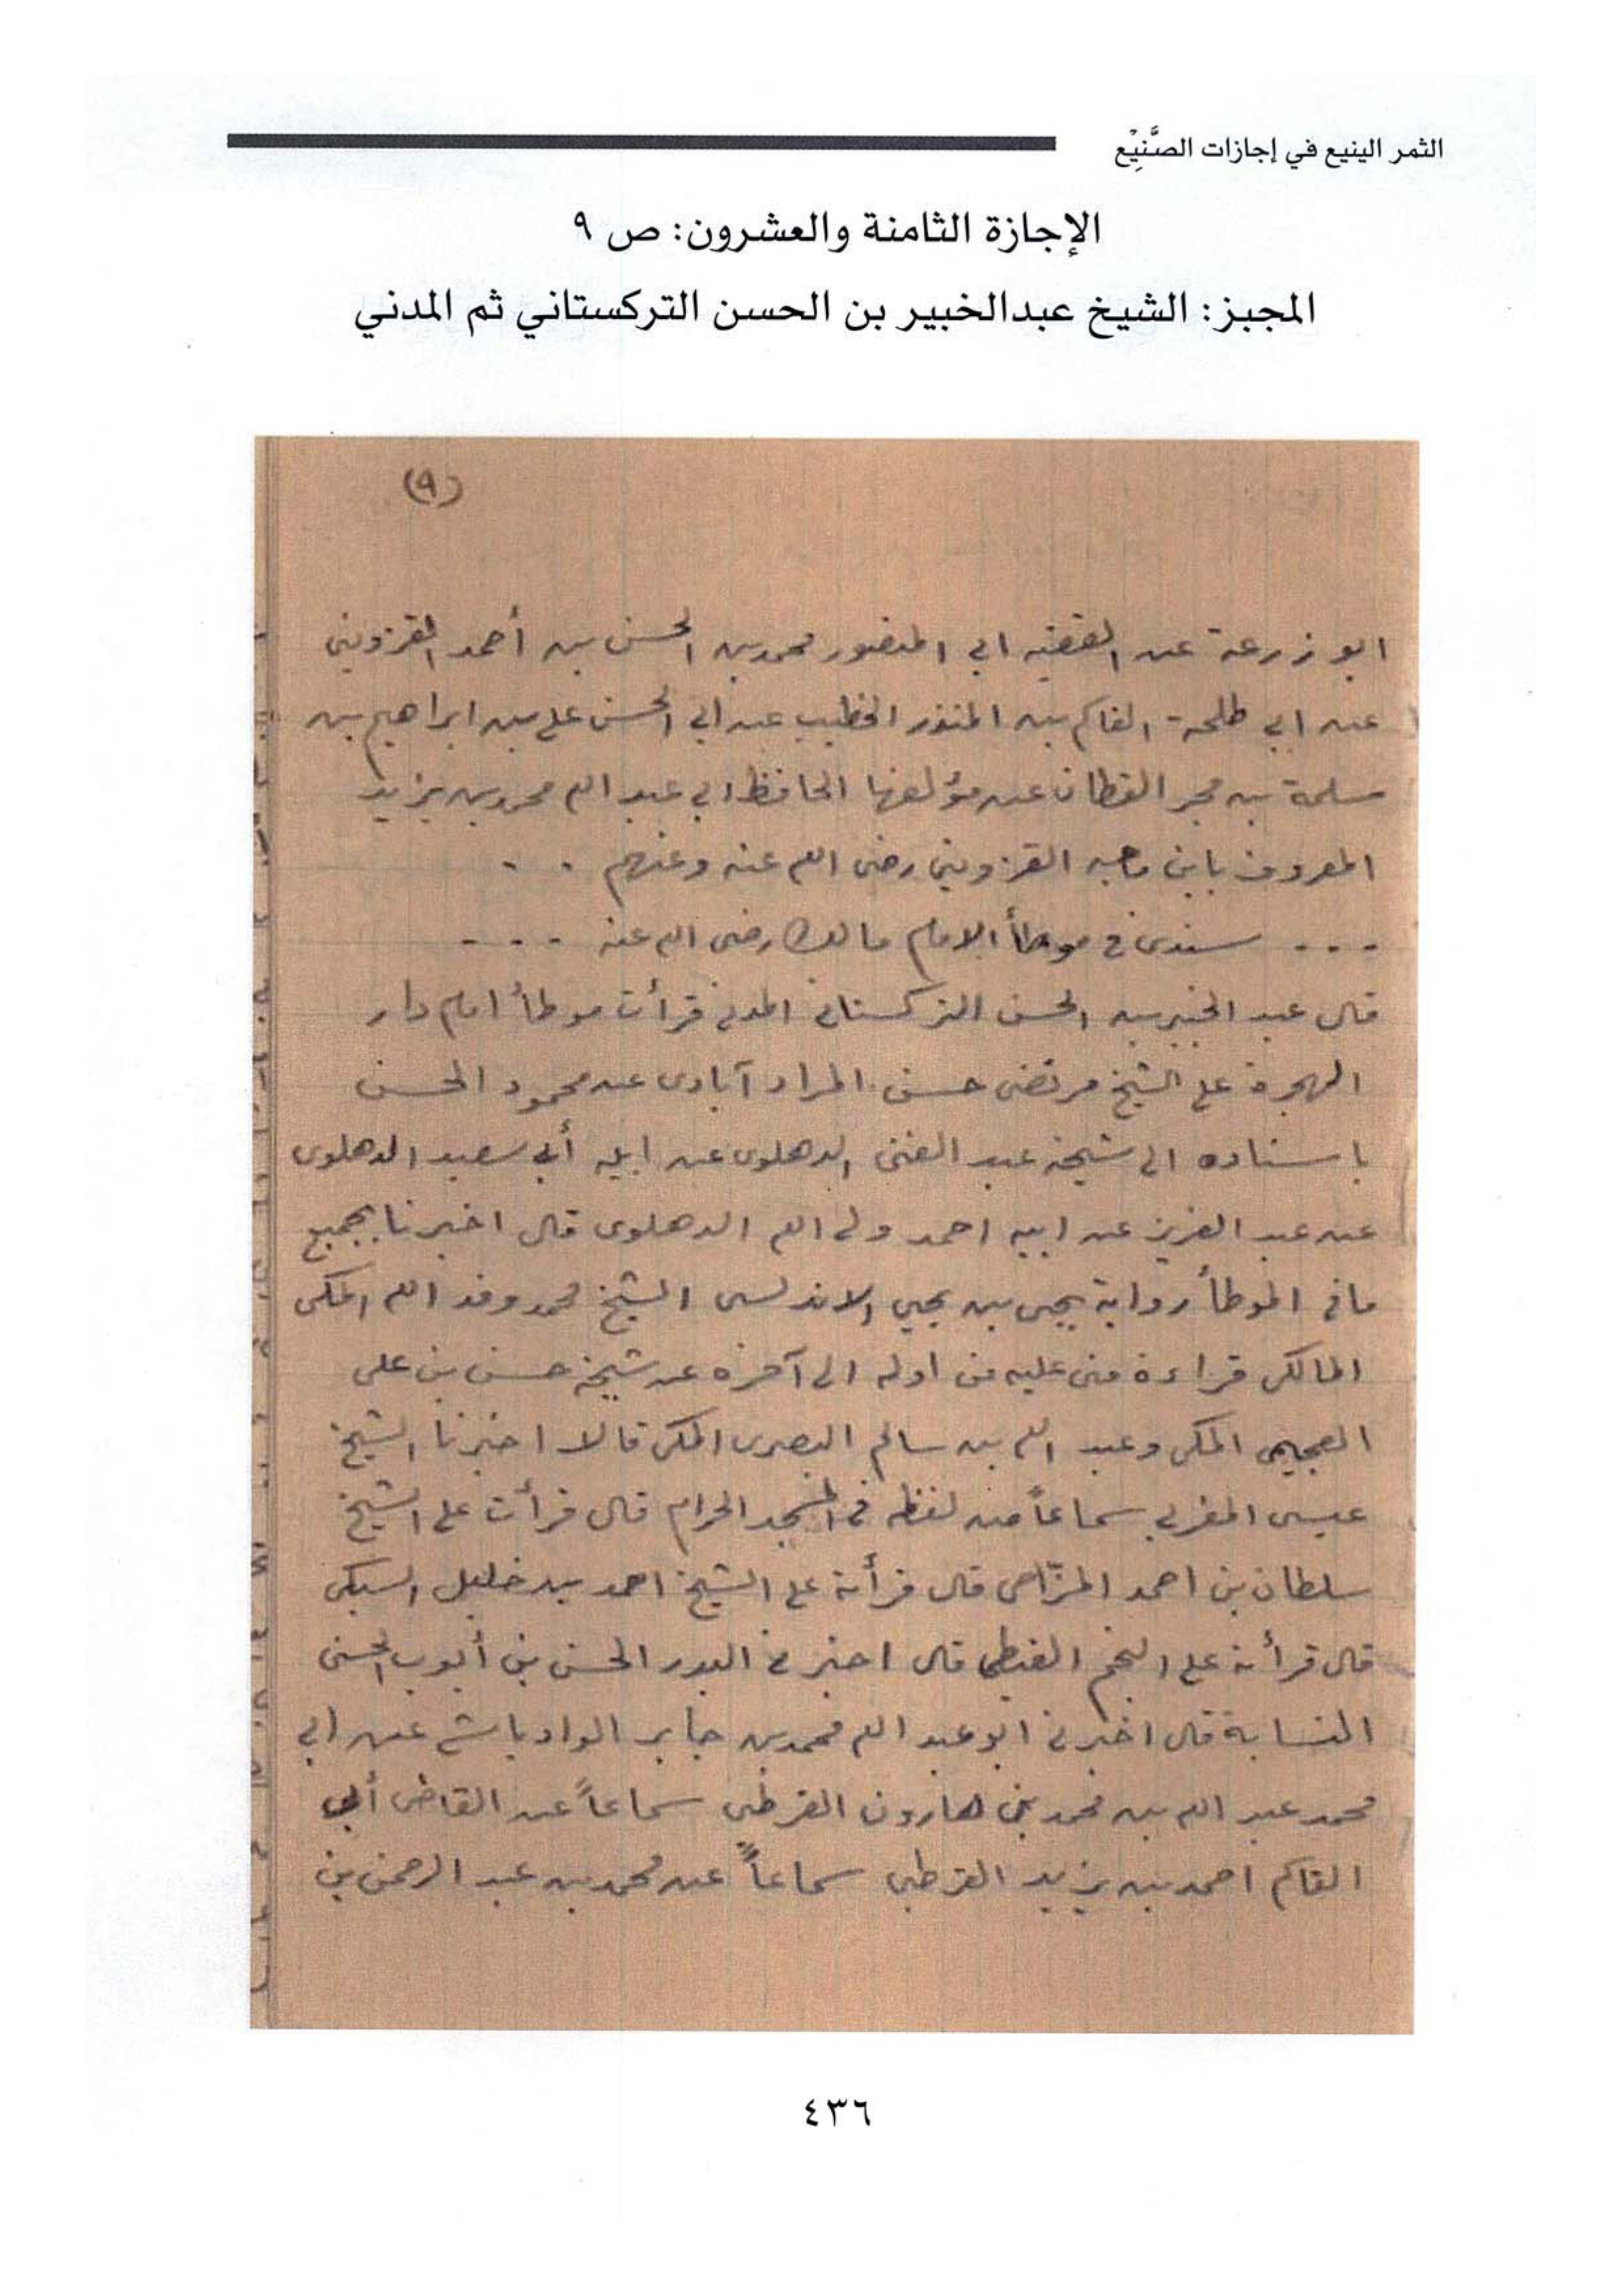 الثمر الينيع في إجازات الصَّنِيْع
الإجازة الثامنة والعشرون: ص ٩
المجبز: الشيخ عبدالخبير بن الحسن التركستاني ثم المدني
(٩)
ابو زرعة عن الفقيه ابي المنصور محمد بن الحسن بن أحمد القزويني
عن ابي طلحة القاسم بن المنذر الخطيب عن ابي الحسن علي بن ابراهيم بن
سلمة بن مجر القطان عن مؤلفها الحافظ ابي عبد الله محمد بن يزيد
المعروف بابن ماجه القزويني رضى الله عنه وعنهم . .
. . . سندى في موطأ الامام مالك رضى الله عنه . . .
قال عبد الخبير بن الحسن التركستاني المدني قرأت موطأ امام دار
الهجرة على الشيخ مرتضى حسن المراد آبادى عن محمود الحسن
باسناده الى شيخه عبد الغنى الدهلوى عن ابيه أبي سعيد الدهلوى
عن عبد العزيز عن ابيه احمد ولى الله الدهلوى قال اخبرنا بجميع
ما في الموطأ رواية يحيى بن يحيى الاندلسى الشيخ محمد وفد الله المكى
المالكى قراءة منى عليه من اوله الى آخره عن شيخه حسن بن على
العجيمى المكى وعبد الله بن سالم البصرى المكى قالا اخبرنا الشيخ
عيسى المغربي سماعاً من لفظه في المسجد الحرام قال قرأت على الشيخ
سلطان بن احمد المزّاحى قال قرأته على الشيخ احمد بن خليل السبكى
قال قرأته على النجم الغيطى قال اخبرني البدر الحسن بن أيوب الحسنى
النسابة قال اخبرني ابو عبد الله محمد بن جابر الوادياشي عن ابي
محمد عبد الله بن محمد بن هارون القرطبى سماعاً عن القاضى أبي
القاسم احمد بن يزيد القرطبى سماعاً عن محمد بن عبد الرحمن بن
٤٣٦